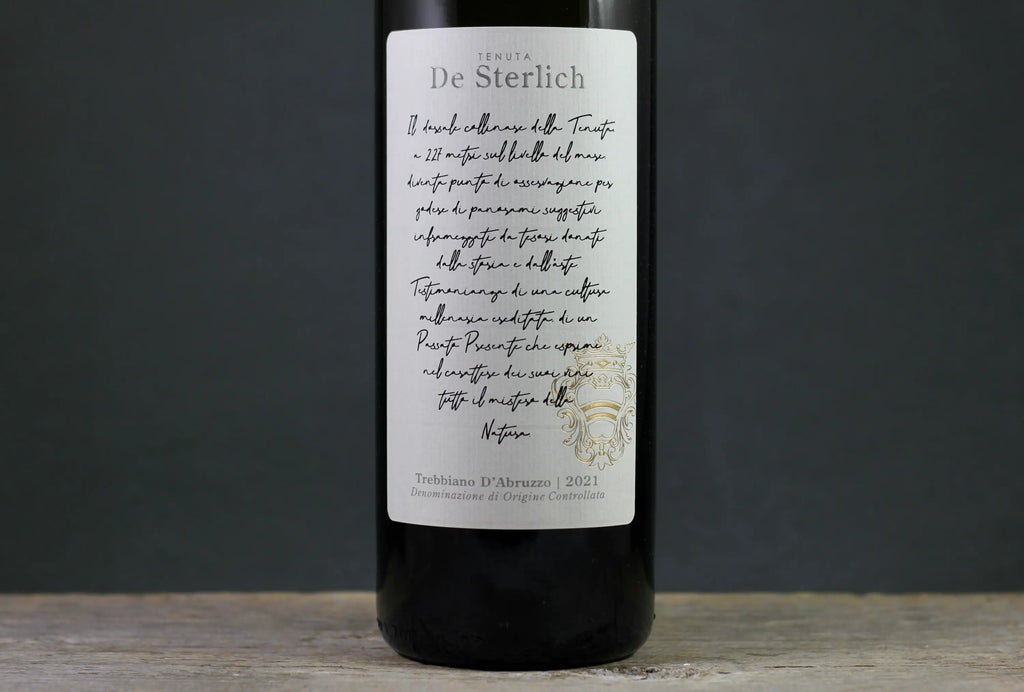 TENUTA
De Sterlich
Il dorsale collinare della Tenuta,
a 227 metri sul livello del mare,
diventa punto di osservazione per
godere di panorami suggestivi
inframezzati da tesori donati
dalla storia e dall'arte.
Testimonianza di una cultura
millenaria ereditata, di un
Passato Presente che esprimi
nel carattere dei suoi vini
tutto il mistero della
Natura.
Trebbiano D'Abruzzo | 2021
Denominazione di Origine Controllata